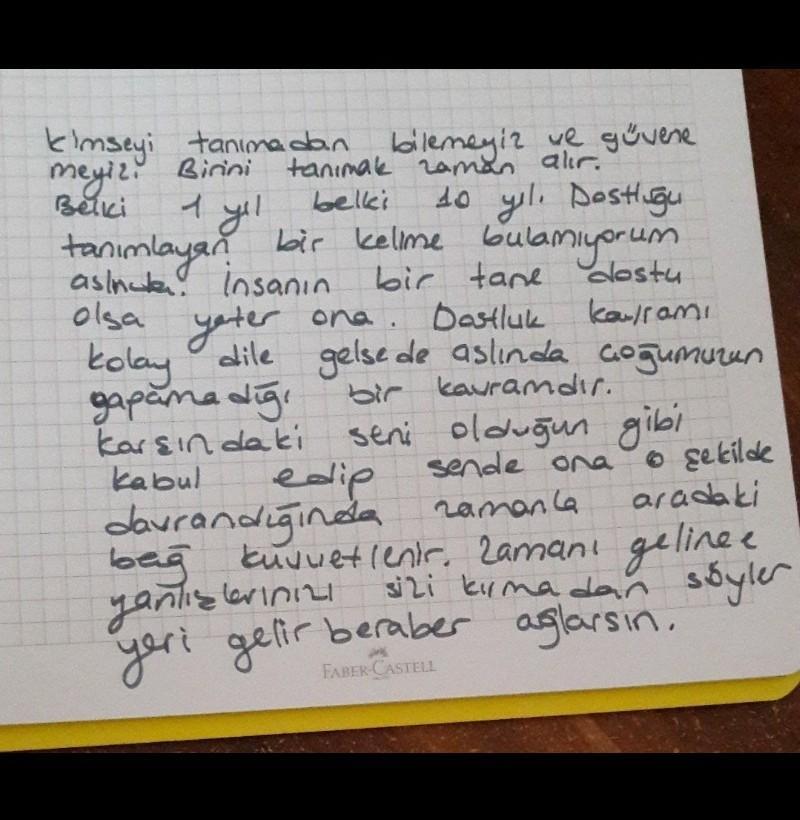 Kimseyi tanımadan bilemeyiz ve güvene
meyiz. Birini tanımak zaman alır.
Belki 1 yıl belki 10 yıl. Dostluğu
tanımlayan bir kelime bulamıyorum
aslında. İnsanın bir tane dostu
olsa yeter ona. Dostluk kavramı
kolay dile gelsede aslında çoğumuzun
yapamadığı bir kavramdır.
Karşındaki seni olduğun gibi
kabul edip sende ona o şekilde
davrandığında zamanla aradaki
bağ kuvvetlenir. Zamanı gelince
yanlışlarınızı sizi kırmadan söyler
yeri gelir beraber ağlarsın.
FABER-CASTELL